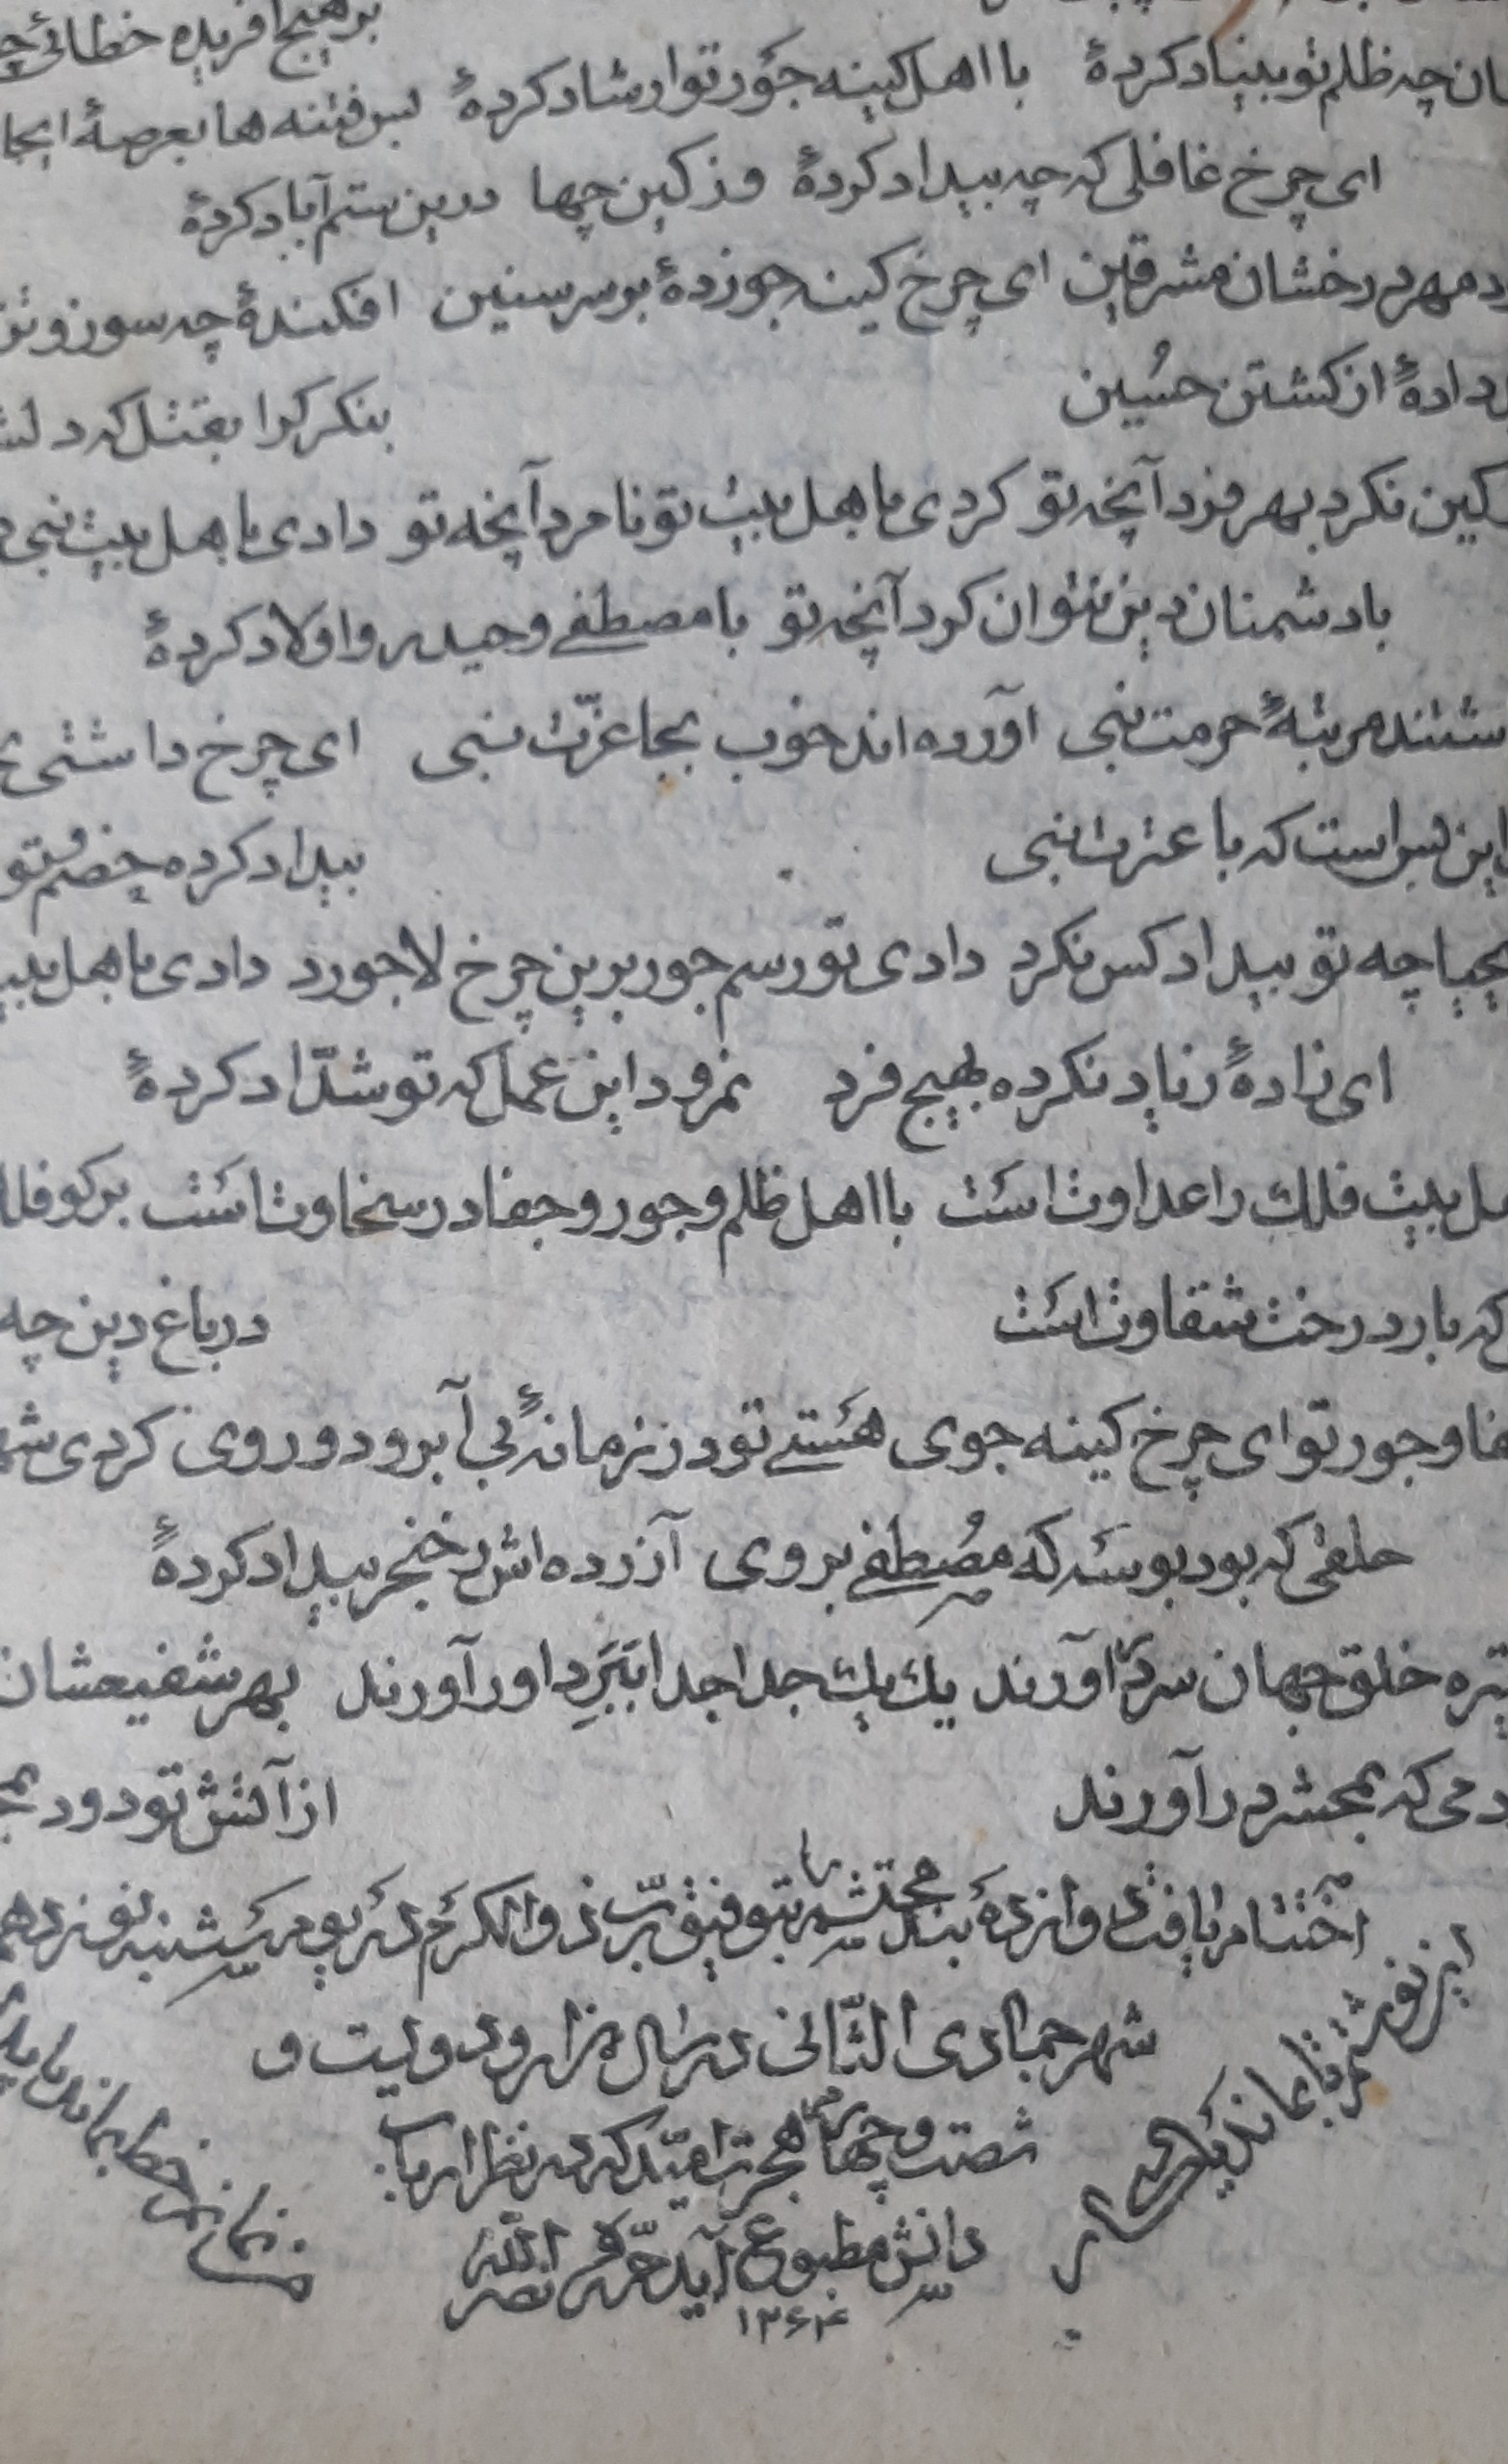 بر هیچ آفریده خطائی
چه ظلم تو بنیاد کردهٔ با اهل کینه جؤر تو ارشاد کردهٔ بس فتنه ها بعرصهٔ ایجا
ای چرخ غافلی که چه بیداد کردهٔ وز کین چها درین ستم آباد کردهٔ
مهر درخشان مشرقین ای چرخ کینه جو زدهٔ بر سر سنین افکندهٔ چه سوز و
دادهٔ از کشتن حسُین بنکر کرا بقتل که دلش
کین نکرد بهر فرد آنچه تو کردی باهل بیت تو نامرد آنچه تو دادی باهل بیت نبی
با دشمنان دین نتوان کرد آنچه تو با مصطفے و حیدر و اولاد کردهٔ
مرتبهٔ حرمت نبی آورده اند خوب بجا عزّت نبی ای چرخ داشتی
این بس است که با عترت نبی بیداد کرده خصم و تو
چه تو بیداد کس نکرد دادی تو رسم جور برین چرخ لاجورد دادی باهل
ای زادهٔ زیاد نکرده بهیچ فرد نمرود این عمل که تو شدّاد کردهٔ
بیت فلک را عداوت است با اهل ظلم و جور و جفا در سخاوت است برکو
که بار درخت شقاوت است در باغ دین چه
و جور تو ای چرخ کینه جوی هستے تو در زمانهٔ بی آبرو دو روی کردی
حلقی که بود بوسه که مصُطفے بروی آزرده اش ز خنجر بیداد کردهٔ
خلق جهان سر بر آورند یک یک جدا جدا ببَرِ داور آورند بهر شفیعشان
دمی که بمحشر در آورند از آتش تو دود
اختتام یافت دوازدهٔ بند محتشم بتوفیق ربّ ذوالکرم در یوم یکشنبه نوزدهم
شهر جمادی الثّانی در سال هزار و دویست و
شصت و چهار هجرت امید که در نظر ارباب
دانش مطبوع آید حرّره نصر الله
۱۲۶۴
این نوشتم تا بماند یادگار
من نمانم خط بماند